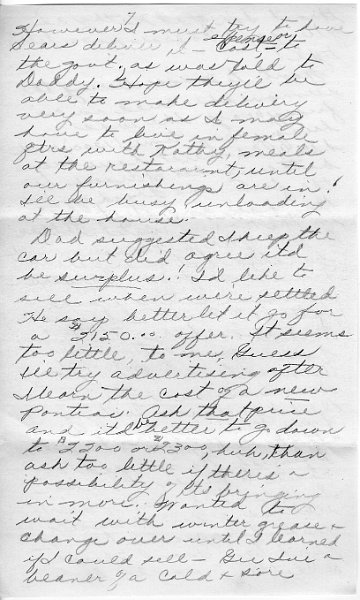 7
However I must try to have
Sears deliver it - expense on
cost - to
the govt. as was told to
Daddy. Hope they'll be
able to make delivery
very soon as I may
have to live in female
qtrs with Kathy, meals
at the restaurant, until
our furnishings are in!
I'll be busy unloading
at the house.
Dad suggested I keep the
car but did agree it'd
be surplus! I'd like to
sell when we're settled
He say better let it go for
a $2150.00 offer. It seems
too little, to me, Guess
I'll try advertising after
I learn the cost of a new
Pontiac. Ask that price
and it'd better to go down
to $2200 or $2300, huh, than
ask too little if there's a
possibility of its bringing
in more. Wanted to
wait with winter grease &
change over until I learned
if I could sell - Gee I've a
beaner of a cold & sore